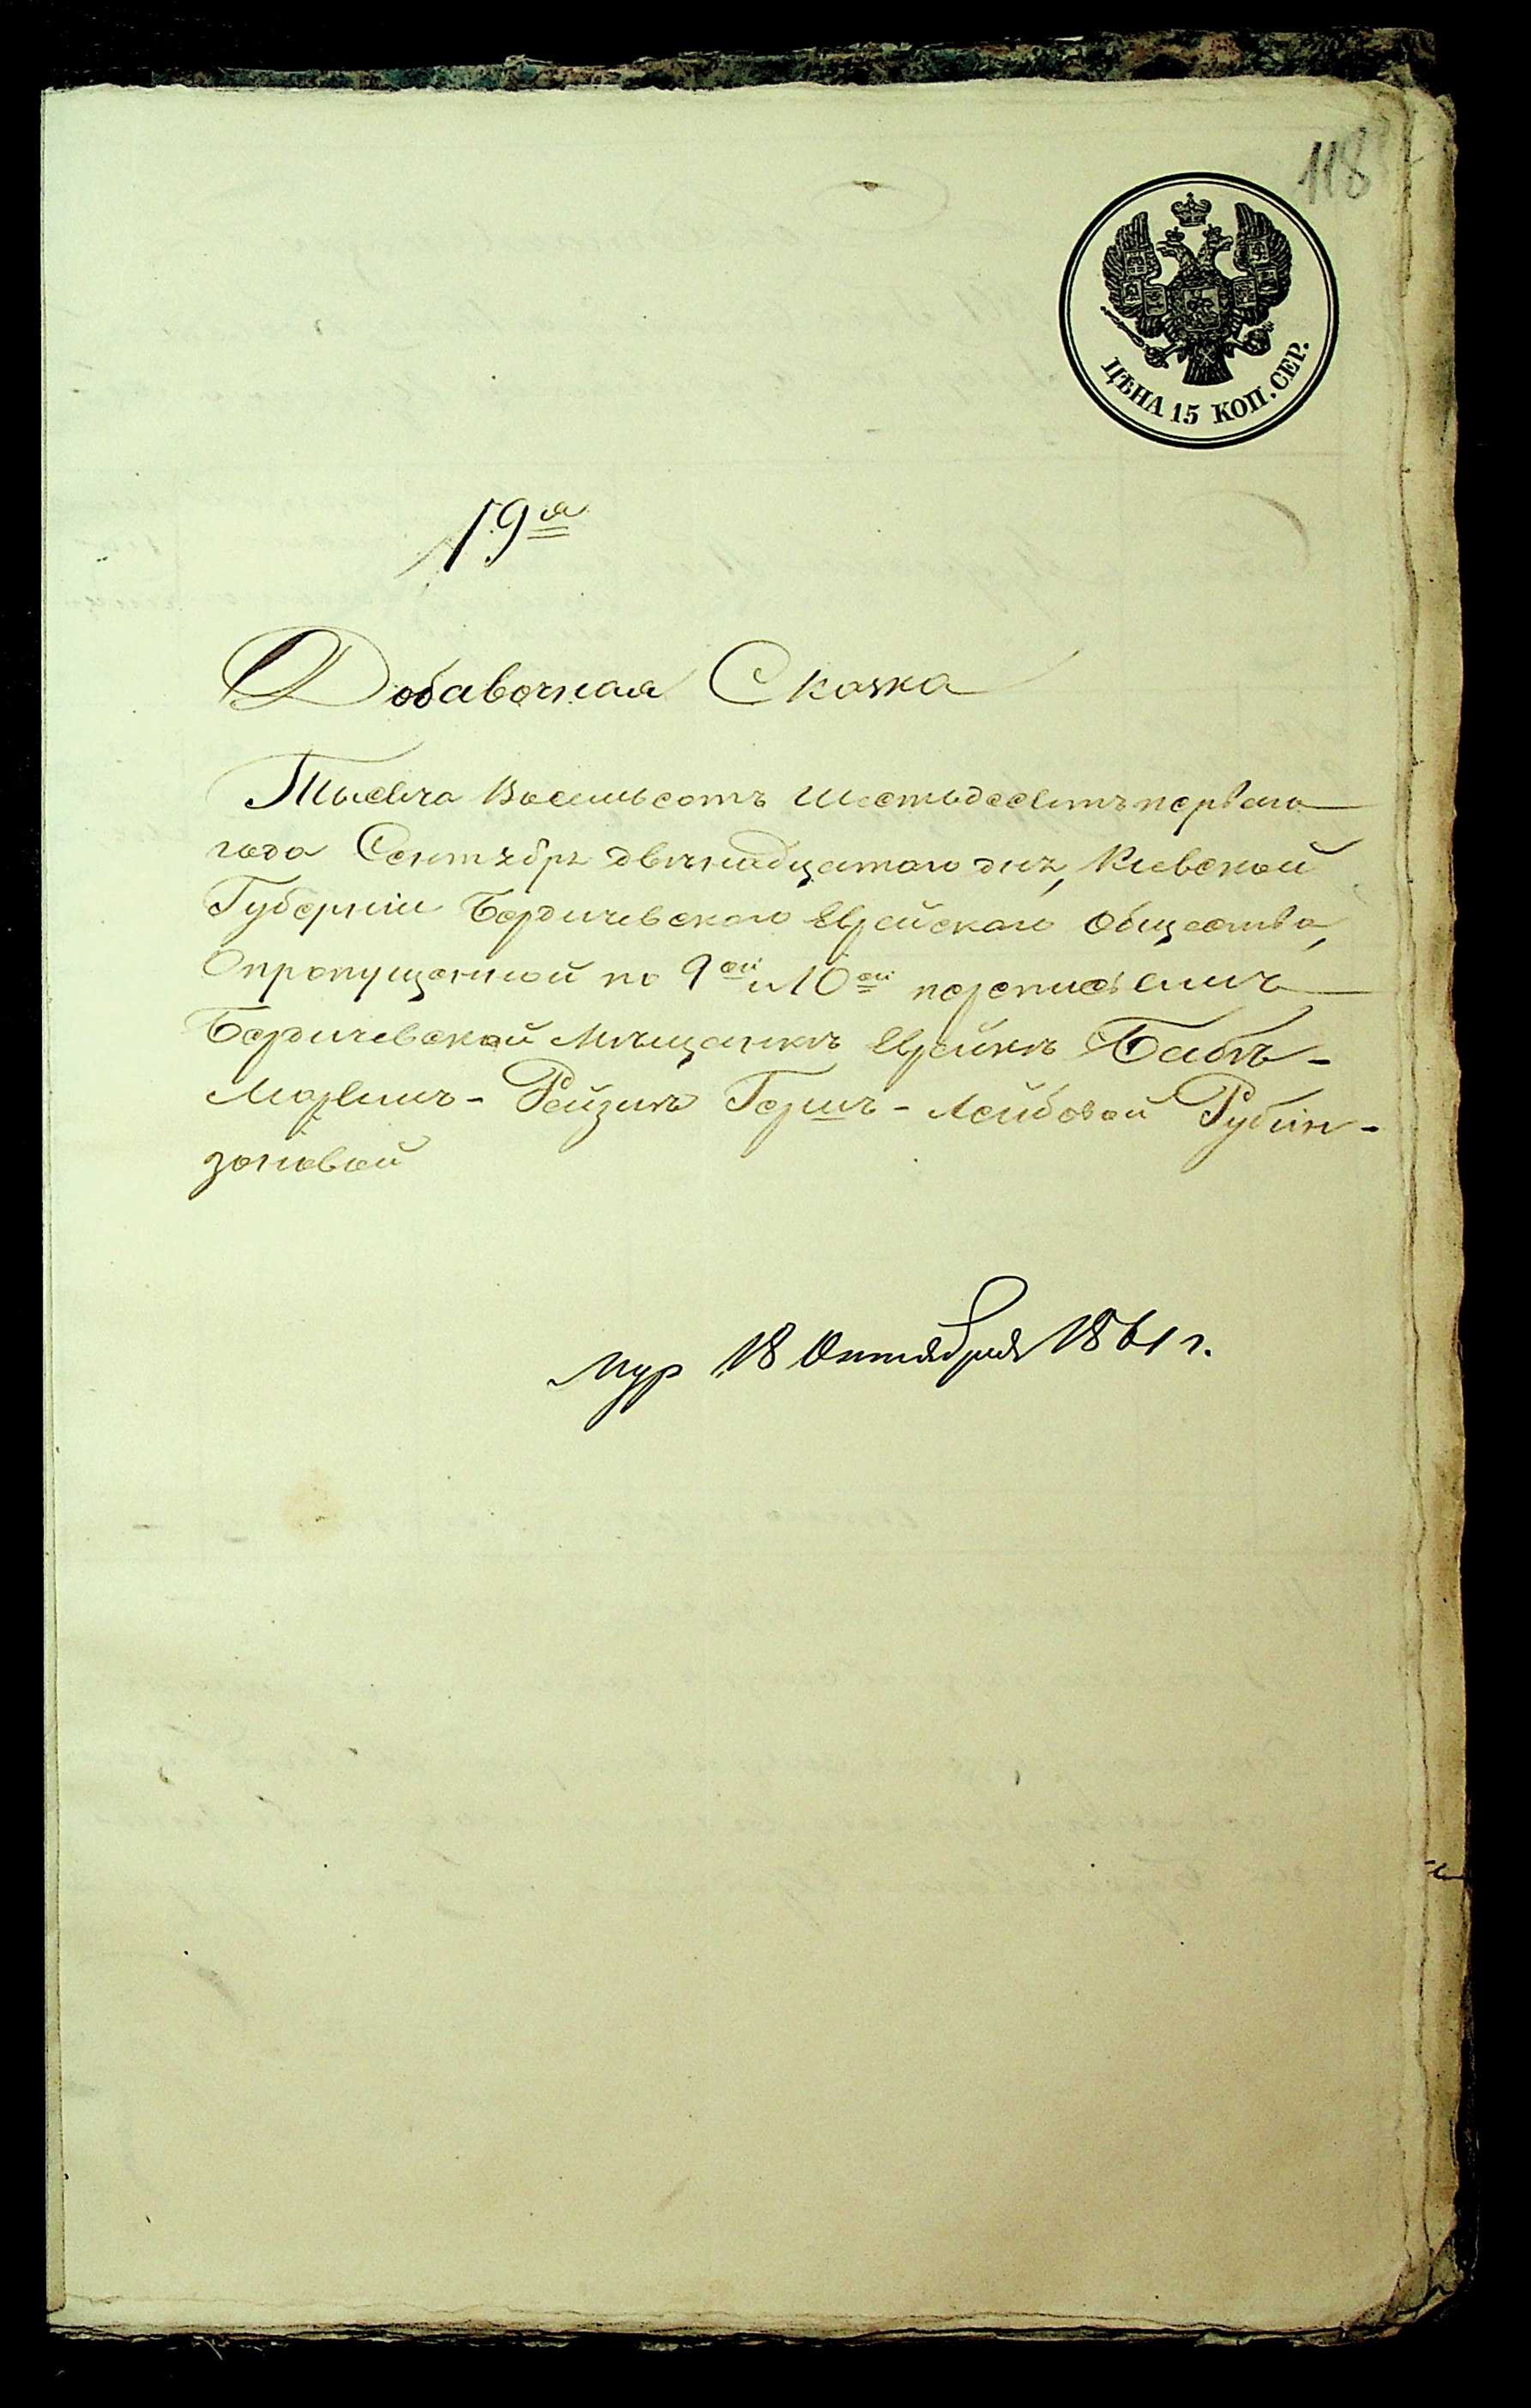 118
ЦѢНА 15 КОП. СЕР.
19ая
Добавочная Сказка
Тысяча Восемьсотъ Шестьдесятъ перваго
года Сентября двѣнадцатаго дня, Кіевской
Губерніи Бердичевскаго Еврейскаго Общества,
О пропущенной по 9ой и 10ой переписямъ
Бердичевской Мѣщанкѣ Еврейкѣ Бабѣ-
Маріимъ-Рейзинѣ Гершъ-Лейбовой Рубин-
зоновой
18 Октября 1861 г.